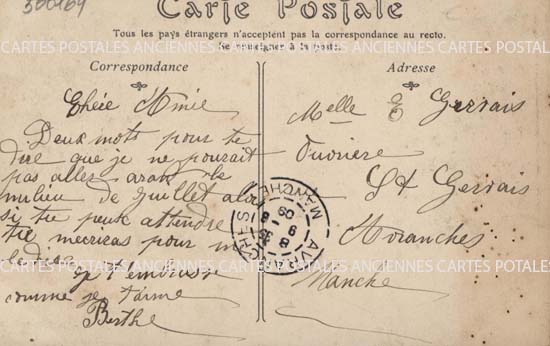 300164
Carte Postale
Tous les pays étrangers n'acceptent pas la correspondance au recto.
Se renseigner à la poste.
CARTES POSTALES ANCIENNES CARTES POSTALES ANCIENNES CARTES POSTALES
Correspondance
Chéée Amie
Deux mots pour te
dire que je ne pourait
pas aller avant le
milieu de Juillet alors
si tu peux attendre
tu mecriras pour m
le dire
je t'embrasse
comme je t'aime
Berthe
Adresse
Melle E Gervais
Ouvrière
St Gervais
Avranches
Manche
AVRANCHES
MANCHE
CARTES POSTALES ANCIENNES CARTES POSTALES ANCIENNES CARTES POSTALES
CARTES POSTALES ANCIENNES CARTES POSTALES ANCIENNES CARTES POSTALES